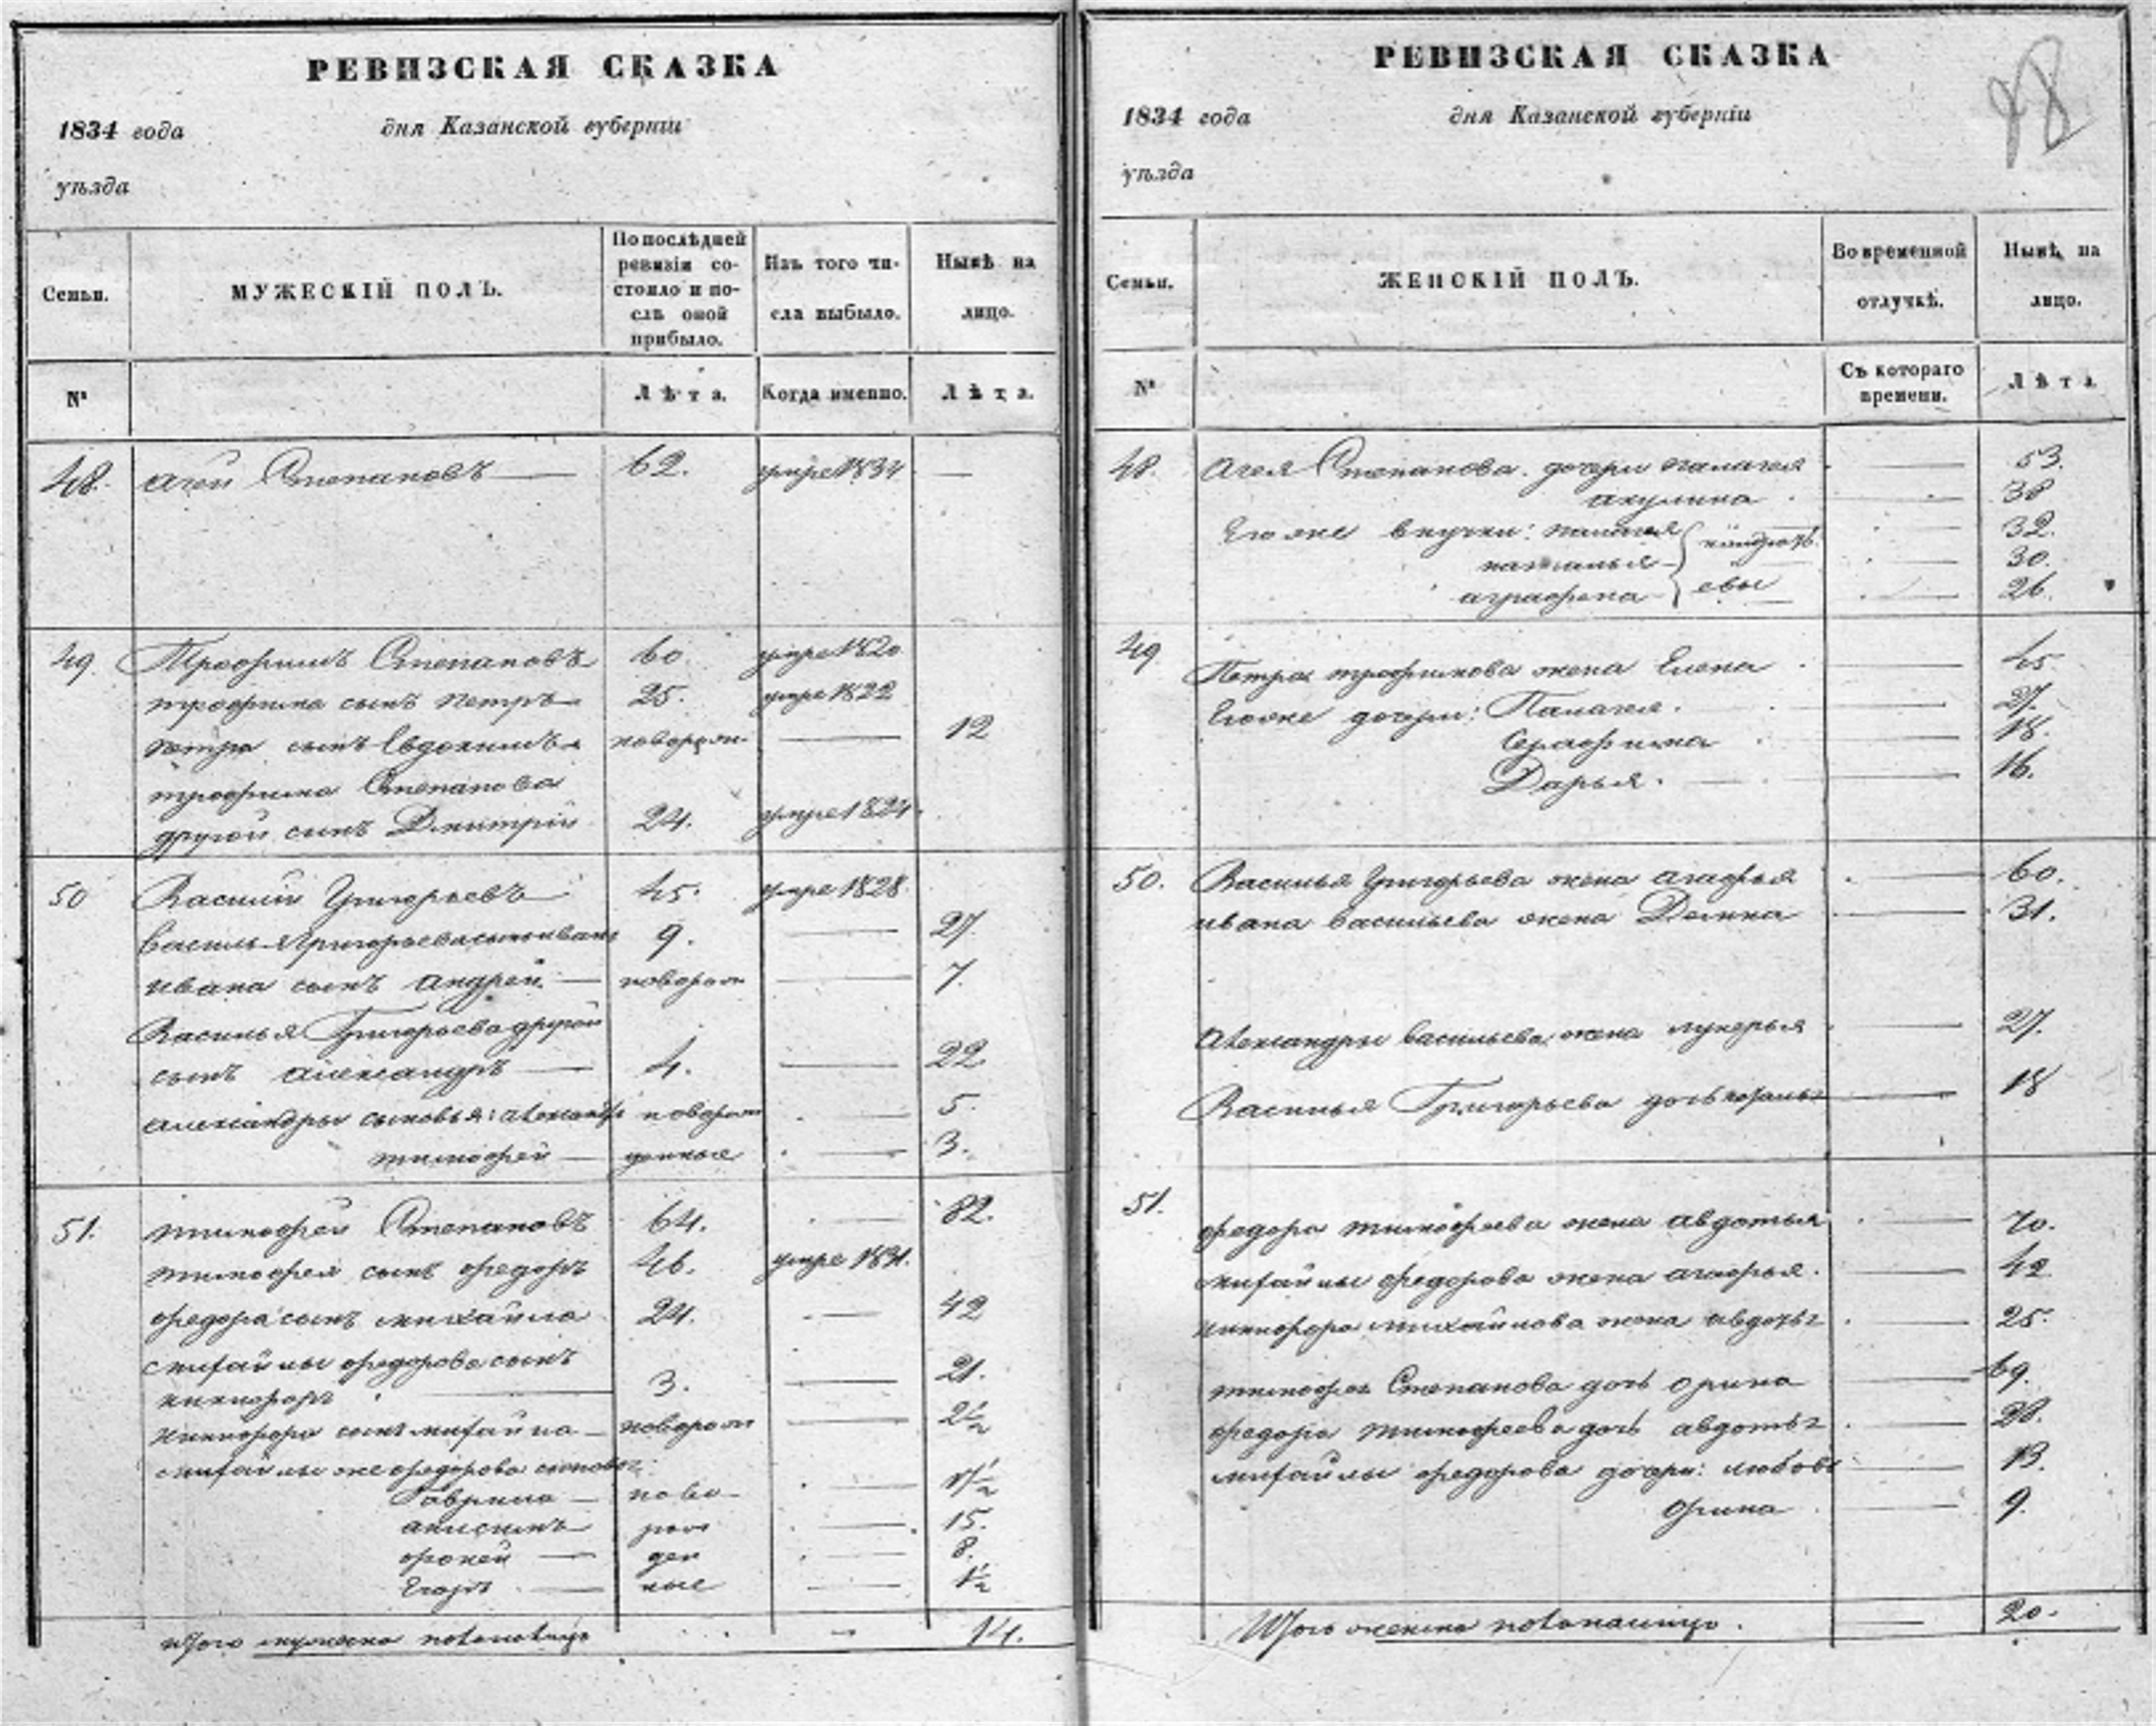 РЕВИЗСКАЯ СКАЗКА
1834 года дня Казанской губерніи
уѣзда
Семьи.
МУЖЕСКІЙ ПОЛЪ.
По послѣдней ревизіи со-
стояло и по-
слѣ оной
прибыло.
Изъ того чи-
сла выбыло.
Нынѣ на
лицо.
№
Лѣта.
Когда именно.
Лѣта.
48. агей Степановъ 62. умре 1834 —
49. Трофимъ Степановъ 60. умре 1820
трофима сынъ петръ 25. умре 1822
петра сынъ Евдокимъ новорож. — 12
трофима Степанова
другой сынъ Дмитрій 24. умре 1824.
50 Василий Григорьевъ 45. умре 1828
Василья Григорьева сынъ иванъ 9. — 27
ивана сынъ андрей — новорож — 7.
Василья Григорьева другой
сынъ александръ — 4. — 22.
александры сыновья: новорож — 5.
тимофей — денные — 3.
51. тимофей Степановъ 64. — 82.
тимофея сынъ федоръ 46. умре 1831.
федора сынъ михайла 24. — 42
михайлы федорова сынъ
никифоръ 3. — 21.
никифора сынъ михайла — новорож — 2½
михайлы же федорова сыновья:
Гаврила — ново —
анисимъ рож — 15.
фокей — ден — 8.
Егоръ — ные — ½
Итого мужеска пола налицо — 14.
РЕВИЗСКАЯ СКАЗКА
1834 года дня Казанской губерніи
уѣзда
Семьи.
ЖЕНСКІЙ ПОЛЪ.
Во временной
отлучкѣ.
Нынѣ на
лицо.
№
Съ котораго
времени.
Лѣта
48. агея Степанова дочери палагея — 53.
акулина — 38
Его же внучки: палагея кондрать — 32.
наталья — 30.
аграфена евы — 26.
49 Петра трофимова жена Елена — 45
Его же дочери: Палагея. — 27.
Серафима — 18.
Дарья. — 16.
50. Василья Григорьева жена агафья — 60.
ивана васильева жена Домна — 31.
александры васильева жена лукерья — 27.
Василья Григорьева дочь — 18
51. федора тимофеева жена авдотья — 70.
михайлы федорова жена агафья. — 42
никифора михайлова жена авдотья — 25.
тимофея Степанова дочь орина — 69.
федора тимофеева дочь авдотья — 28.
михайлы федорова дочери: любовь — 13.
орина — 9.
Итого женска пола налицо. — 20.